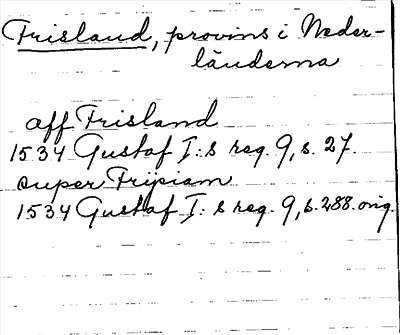 Frisland, provins i Neder-
länderna
aff Frisland
1534 Gustaf I:s reg. 9, s. 27.
super Fripiam
1534 Gustaf I:s reg. 9, s. 288. orig.